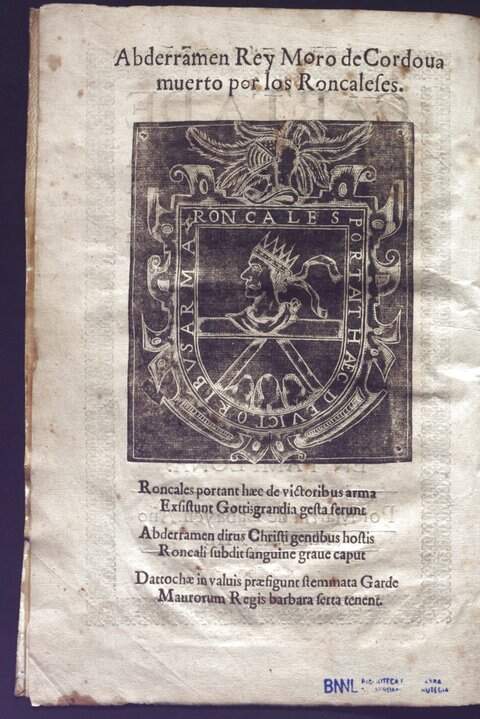 Abderrãmen Rey Moro de Cordoua
muerto por los Roncaleses.
RONCALES PORTAT HÆC DE VICTORIBVS ARMA
Roncales portant hæc de victoribus arma
Exsistunt Gottis grandia gesta ferunt
Abderramen dirus Christi gentibus hostis
Roncali subdit sanguine graue caput
Dattochæ in valuis præfigunt stemmata Garde
Maurorum Regis barbara serta tenent.
BNNL